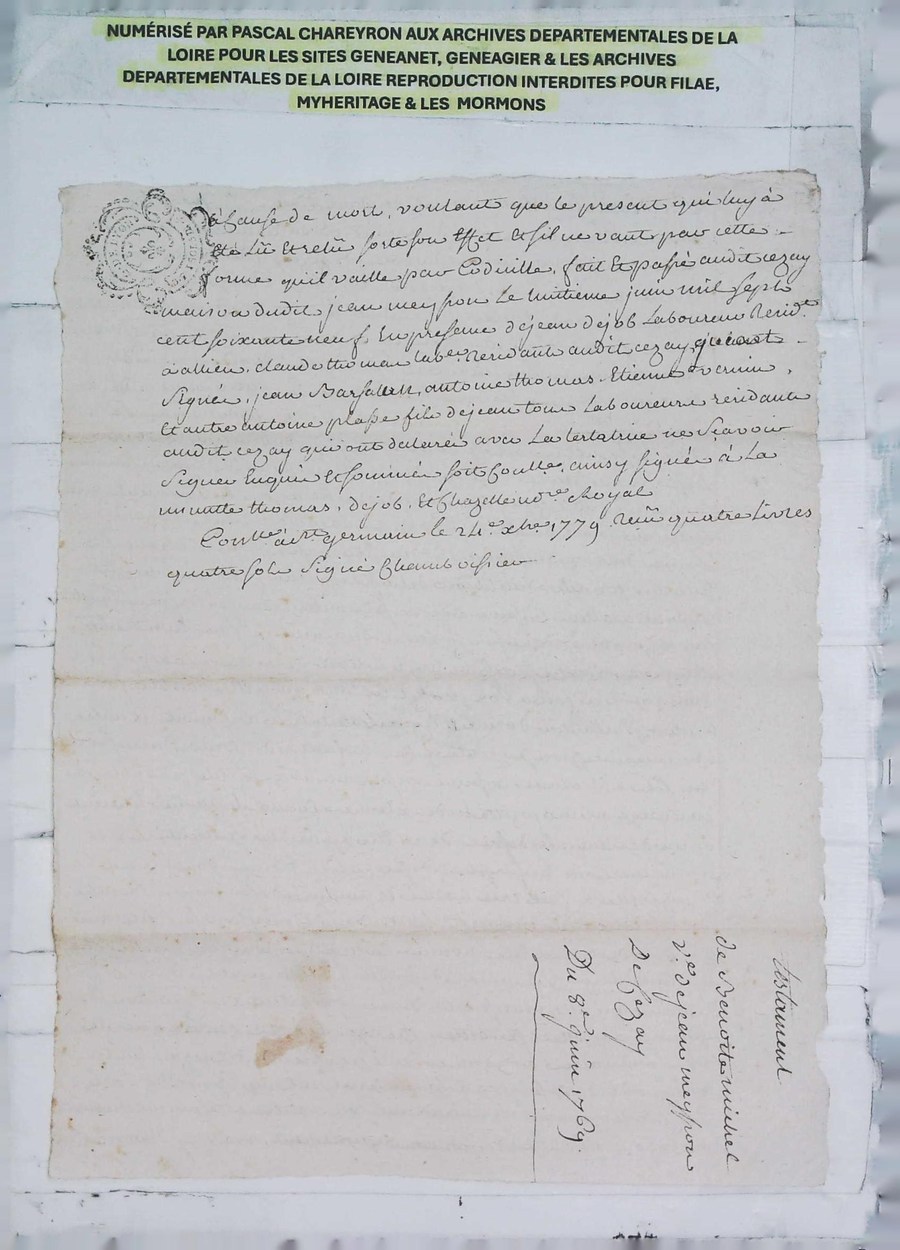 NUMÉRISÉ PAR PASCAL CHAREYRON AUX ARCHIVES DEPARTEMENTALES DE LA
LOIRE POUR LES SITES GENEANET, GENEAGIER & LES ARCHIVES
DEPARTEMENTALES DE LA LOIRE REPRODUCTION INTERDITES POUR FILAE,
MYHERITAGE & LES MORMONS
à Cause de mort, voulant que le present qui luy à
été Lû Et relû sorte son Effet Et s'il ne vaut par cette
forme qu'il vaille par Codicille, fait Et passé audit cezay
maison dudit jean meypon Le huitieme juin mil sept
cent soixante neuf, En presence de jean dejob Laboureur Resid.t
à allieu, claude thomas lab.r residant audit cezay, qui ont
Signés, jean antoine thomas, Etienne vernin,
Et autre antoine plasse fils de jean tous Laboureurs residants
audit cezay qui ont declarés avec La testatrice ne Scavoir
Signer Enquis Et sommés soit Coulle, ainsy signés à La
minutte thomas, dejob, Et Chazelle no.re Royal
Con.lle à st germain le 24.e xbre 1779 quatre Livres
quatre sols Signé
testament
de Benoite michel
v.e de jean meypon
De Cezay
Du 8.e juin 1769.